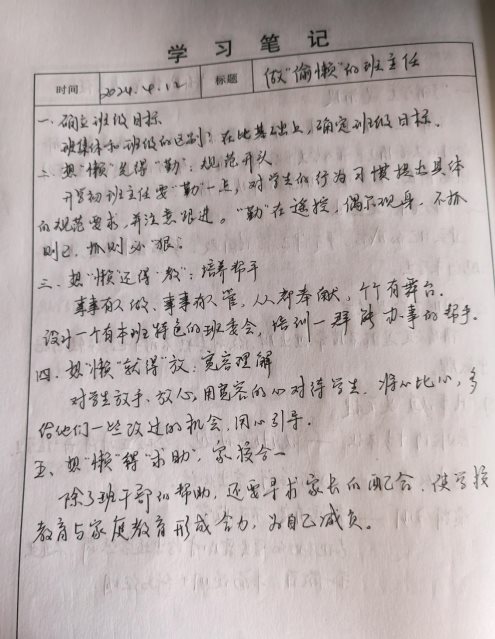 学习笔记
时间 2024.4.12 标题 做“偷懒”的班主任
一、确立班级目标
班集体和班级的区别？在此基础上，确定班级目标。
二、想“懒”先得“勤”：规范开头
开学初班主任要“勤”一点，对学生的行为习惯提出具体
的规范要求，并注意跟进。“勤”在遥控，偶尔现身，不抓
则已，抓则必“狠”。
三、想“懒”还得“教”：培养帮手
事事有人做、事事有人管，人人都奉献，个个有舞台。
设计一个有本班特色的班委会，培训一群能办事的帮手。
四、想“懒”就得“放”：宽容理解
对学生放手、放心，用宽容的心对待学生，将心比心，多
给他们一些改过的机会，用心引导。
五、想“懒”得“求助”，家校合一
除了班干部的帮助，还要寻求家长的配合，使学校
教育与家庭教育形成合力，为自己减负。